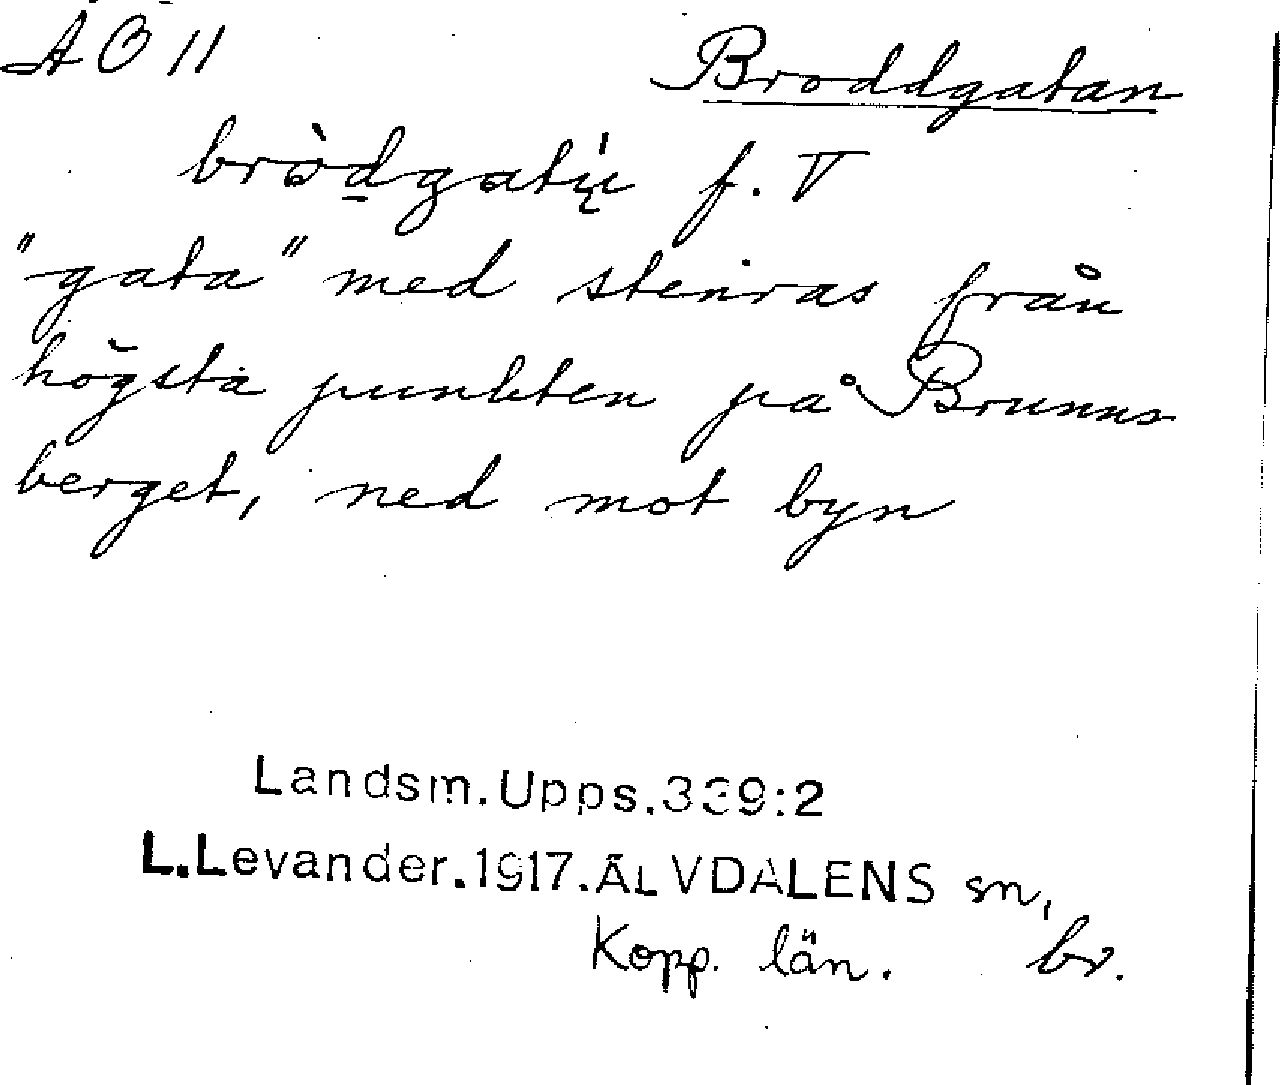 ÄÖ 11
Broddgatan
bròdgatįu̍ f. V
"gata" med stenras från
högsta punkten på Brunns
berget, ned mot byn
Landsm.Upps.339:2
L.Levander.1917.ÄLVDALENS sn,
Kopp. län. br.